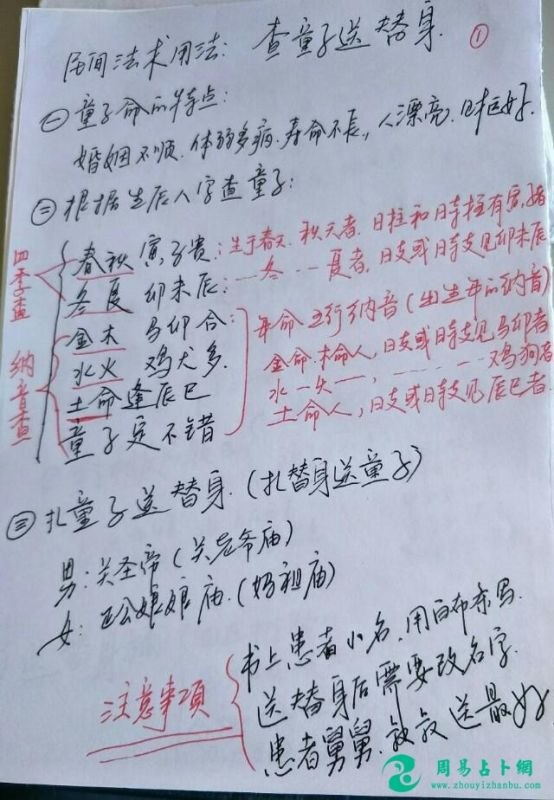 民间法术用法: 查童子送替身. ①
㊀ 童子命的特点:
婚姻不顺. 体弱多病. 寿命不长, 人漂亮. 日柱好.
㊁ 根据生辰八字查童子:
四季查
春秋寅子贵: 生于春天. 秋天者. 日柱和时柱有寅. 子者
冬夏卯未辰: ---冬---夏者. 日支或日时支见卯未辰
纳音查
金木马卯合: 年命五行纳音(出生年的纳音)
金命. 木命人, 日支或日时支见马卯者
水火鸡犬多. 水一火一一, -------鸡狗者
土命逢辰巳 土命人, 日支或日时支见辰巳者
童子定不错
㊂ 扎童子送替身. (扎替身送童子)
男: 关圣帝 (关老爷庙)
女: 娘娘庙. (妈祖庙)
注意事项
书上患者小名. 用白布条写.
送替身后需要改名字.
患者舅舅. 叔叔送最好
周易占卜網
www.zhouyizhanbu.com